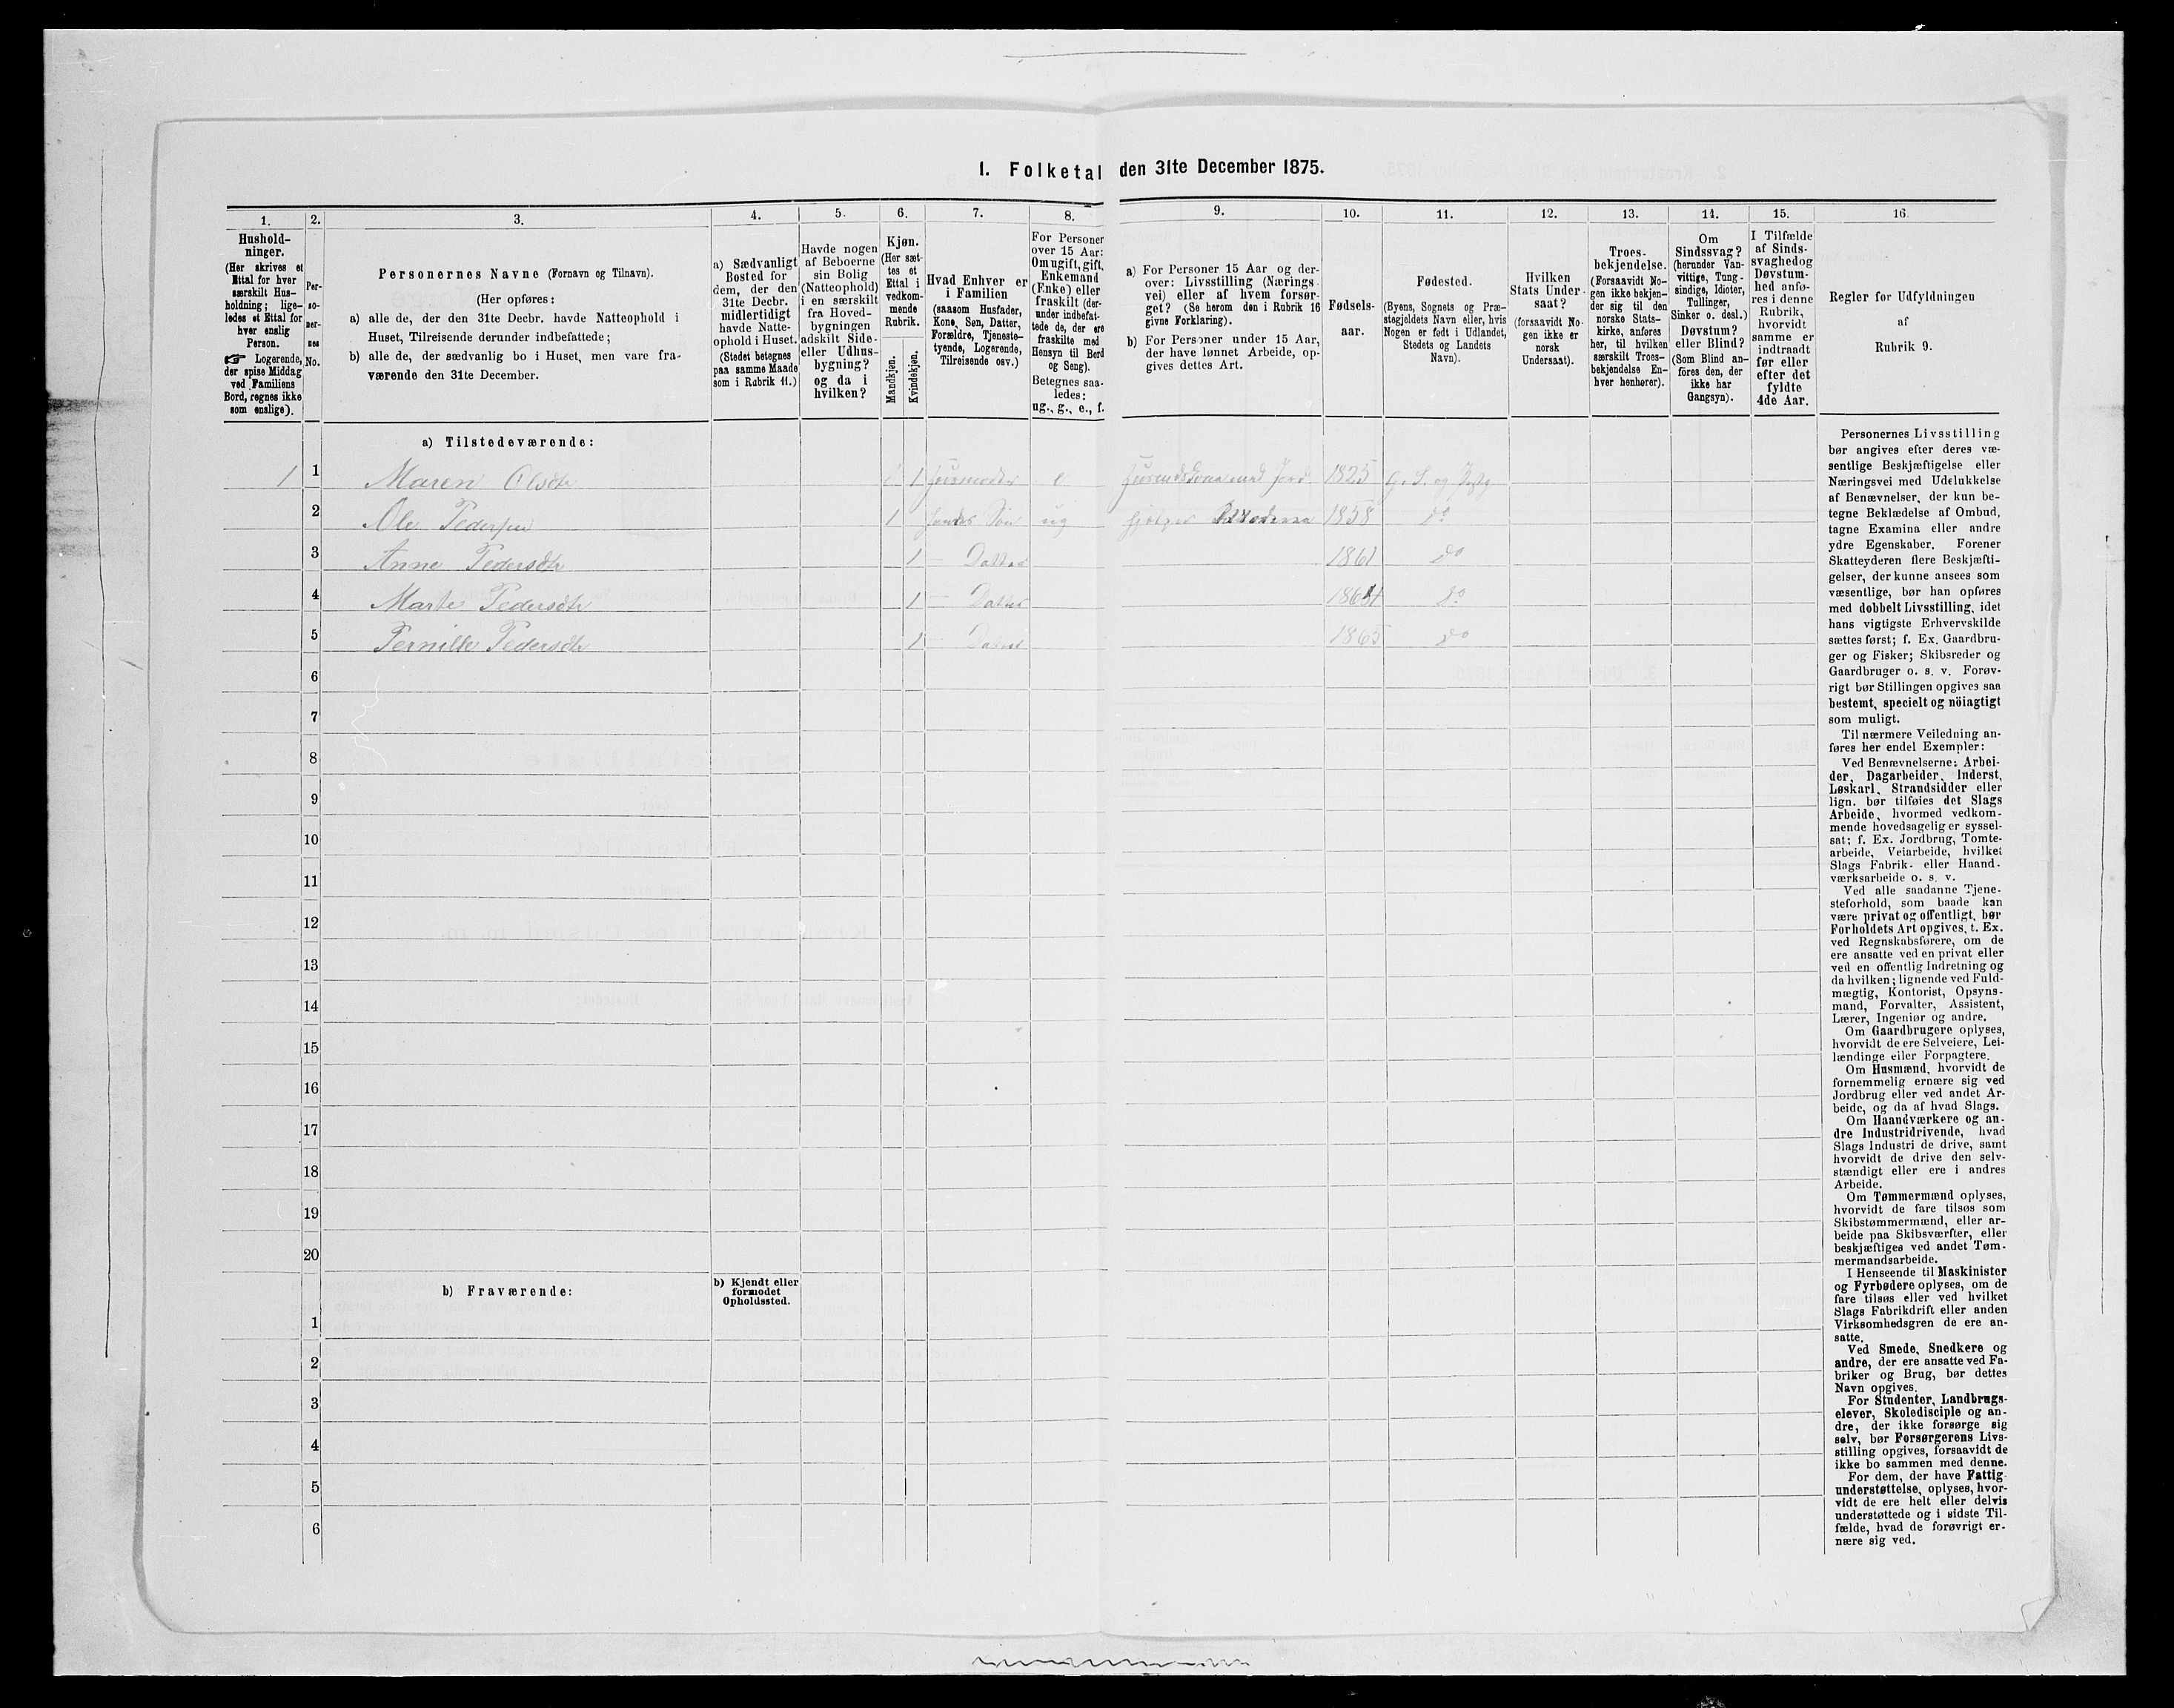 I. Folketal den 31te December 1875.
1.
Hushold-
ninger.
(Her skrives et
Ettal for hver
særskilt Hus-
holdning; lige-
ledes et Ettal for
hver enslig
Person.
☞ Logerende,
der spise Middag
ved Familiens
Bord, regnes ikke
som enslige).
2.
Per-
so-
ner-
nes
No.
3.
Personernes Navne (Fornavn og Tilnavn).
(Her opføres:
a) alle de, der den 31te Decbr. havde Natteophold i
Huset, Tilreisende derunder indbefattede;
b) alle de, der sædvanlig bo i Huset, men vare fra-
værende den 31te December.
4.
a) Sædvanligt
Bosted for
dem, der den
31te Decbr.
midlertidigt
havde Natte-
ophold i Huset.
(Stedet betegnes
paa samme Maade
som i Rubrik 11.)
5.
Havde nogen
af Beboerne
sin Bolig
(Natteophold)
i en særskilt
fra Hoved-
bygningen
adskilt Side-
eller Udhus-
bygning?
og da i
hvilken?
6.
Kjøn.
(Her sæt-
tes et
Ettal i
vedkom-
mende
Rubrik.
Mandkjøn.
Kvindekjøn.
7.
Hvad Enhver er
i Familien
(saasom Husfader,
Kone, Søn, Datter,
Forældre, Tjeneste-
tyende, Logerende,
Tilreisende osv.)
8.
For Personer
over 15 Aar:
Om ugift, gift,
Enkemand
(Enke) eller
fraskilt (der-
under indbefat-
tede de, der ere
fraskilte med
Hensyn til Bord
og Seng).
Betegnes saa-
ledes:
ug., g., e., f.
9.
a) For Personer 15 Aar og der-
over: Livsstilling (Nærings-
vei) eller af hvem forsør-
get? (Se herom den i Rubrik 16
givne Forklaring).
b) For Personer under 15 Aar,
der have lønnet Arbeide, op-
gives dettes Art.
10.
Fødsels-
aar.
11.
Fødested.
(Byens, Sognets og Præ-
stegjeldets Navn eller, hvis
Nogen er født i Udlandet,
Stedets og Landets
Navn).
12.
Hvilken
Stats Under-
saat?
(forsaavidt No-
gen ikke er
norsk
Undersaat).
13.
Troes-
bekjendelse.
(Forsaavidt No-
gen ikke bekjen-
der sig til den
norske Stats-
kirke, anføres
her, til hvilken
særskilt Troes-
bekjendelse En-
hver henhører).
14.
Om
Sindssvag?
(herunder Van-
vittige, Tung-
sindige, Idioter,
Tullinger,
Sinker o. desl.)
Døvstum?
eller Blind?
(Som Blind an-
føres den, der
ikke har
Gangsyn).
15.
I Tilfælde
af Sinds-
svaghed og
Døvstum-
hed anfø-
res i denne
Rubrik,
hvorvidt
samme er
indtraadt
før eller
efter det
fyldte
4de Aar.
16.
Regler for Udfyldningen
af
Rubrik 9.
a) Tilstedeværende:
1 1 Maren Olsdtr 1 Husmoder e Husmandskone med Jord 1825
2 Ole Pedersen 1 Søn ug hjelper 1858 do
3 Anne Pedersdtr 1 Datter 1861 do
4 Marte Pedersdtr 1 Datter do
5 Pernille Pedersdtr 1 Datter 1865 do
6
7
8
9
10
11
12
13
14
15
16
17
18
19
20
b) Fraværende:
b) Kjendt eller
formodet
Opholdssted.
1
2
3
4
5
6
Personernes Livsstilling
bør angives efter deres væ-
sentlige Beskjæftigelse eller
Næringsvei med Udelukkelse
af Benævnelser, der kun be-
tegne Beklædelse af Ombud,
tagne Examina eller andre
ydre Egenskaber. Forener
Skatteyderen flere Beskjæfti-
gelser, der kunne ansees som
væsentlige, bør han opføres
med dobbelt Livsstilling, idet
hans vigtigste Erhvervskilde
sættes først; f. Ex. Gaardbru-
ger og Fisker; Skibsreder og
Gaardbruger o. s. v. Forøv-
rigt bør Stillingen opgives saa
bestemt, specielt og nöiagtigt
som muligt.
Til nærmere Veiledning an-
føres her endel Exempler:
Ved Benævnelserne: Arbei-
der, Dagarbeider, Inderst,
Løskarl, Strandsidder eller
lign. bør tilføies det Slags
Arbeide, hvormed vedkom-
mende hovedsagelig er syssel-
sat; f. Ex. Jordbrug, Tomte-
arbeide, Veiarbeide, hvilket
Slags Fabrik- eller Haand-
værksarbeide o. s. v.
Ved alle saadanne Tjene-
steforhold, som baade kan
være privat og offentligt, bør
Forholdets Art opgives, t. Ex.
ved Regnskabsførere, om de
ere ansatte ved en privat eller
ved en offentlig Indretning og
da hvilken; lignende ved Fuld-
mægtig, Kontorist, Opsyns-
mand, Forvalter, Assistent,
Lærer, Ingeniør og andre.
Om Gaardbrugere oplyses,
hvorvidt de ere Selveiere, Lei-
lændinge eller Forpagtere.
Om Husmænd, hvorvidt de
fornemmelig ernære sig ved
Jordbrug eller ved andet Ar-
beide, og da af hvad Slags.
Om Haandværkere og an-
dre Industridrivende, hvad
Slags Industri de drive, samt
hvorvidt de drive den selv-
stændigt eller ere i andres
Arbeide.
Om Tømmermænd oplyses,
hvorvidt de fare tilsøs som
Skibstømmermænd, eller ar-
beide paa Skibsværfter, eller
beskjæftiges ved andet Tøm-
mermandsarbeide.
I Henseende til Maskinister
og Fyrbødere oplyses, om de
fare tilsøs eller ved hvilket
Slags Fabrikdrift eller anden
Virksomhedsgren de ere an-
satte.
Ved Smede, Snedkere og
andre, der ere ansatte ved Fa-
briker og Brug, bør dettes
Navn opgives.
For Studenter, Landbrugs-
elever, Skoledisciple og an-
dre, der ikke forsørge sig
selv, bør Forsørgerens Livs-
stilling opgives, forsaavidt de
ikke bo sammen med denne.
For dem, der have Fattig-
understøttelse, oplyses, hvor-
vidt de ere helt eller delvis
understøttede og i sidste Til-
fælde, hvad de forøvrigt er-
nære sig ved.